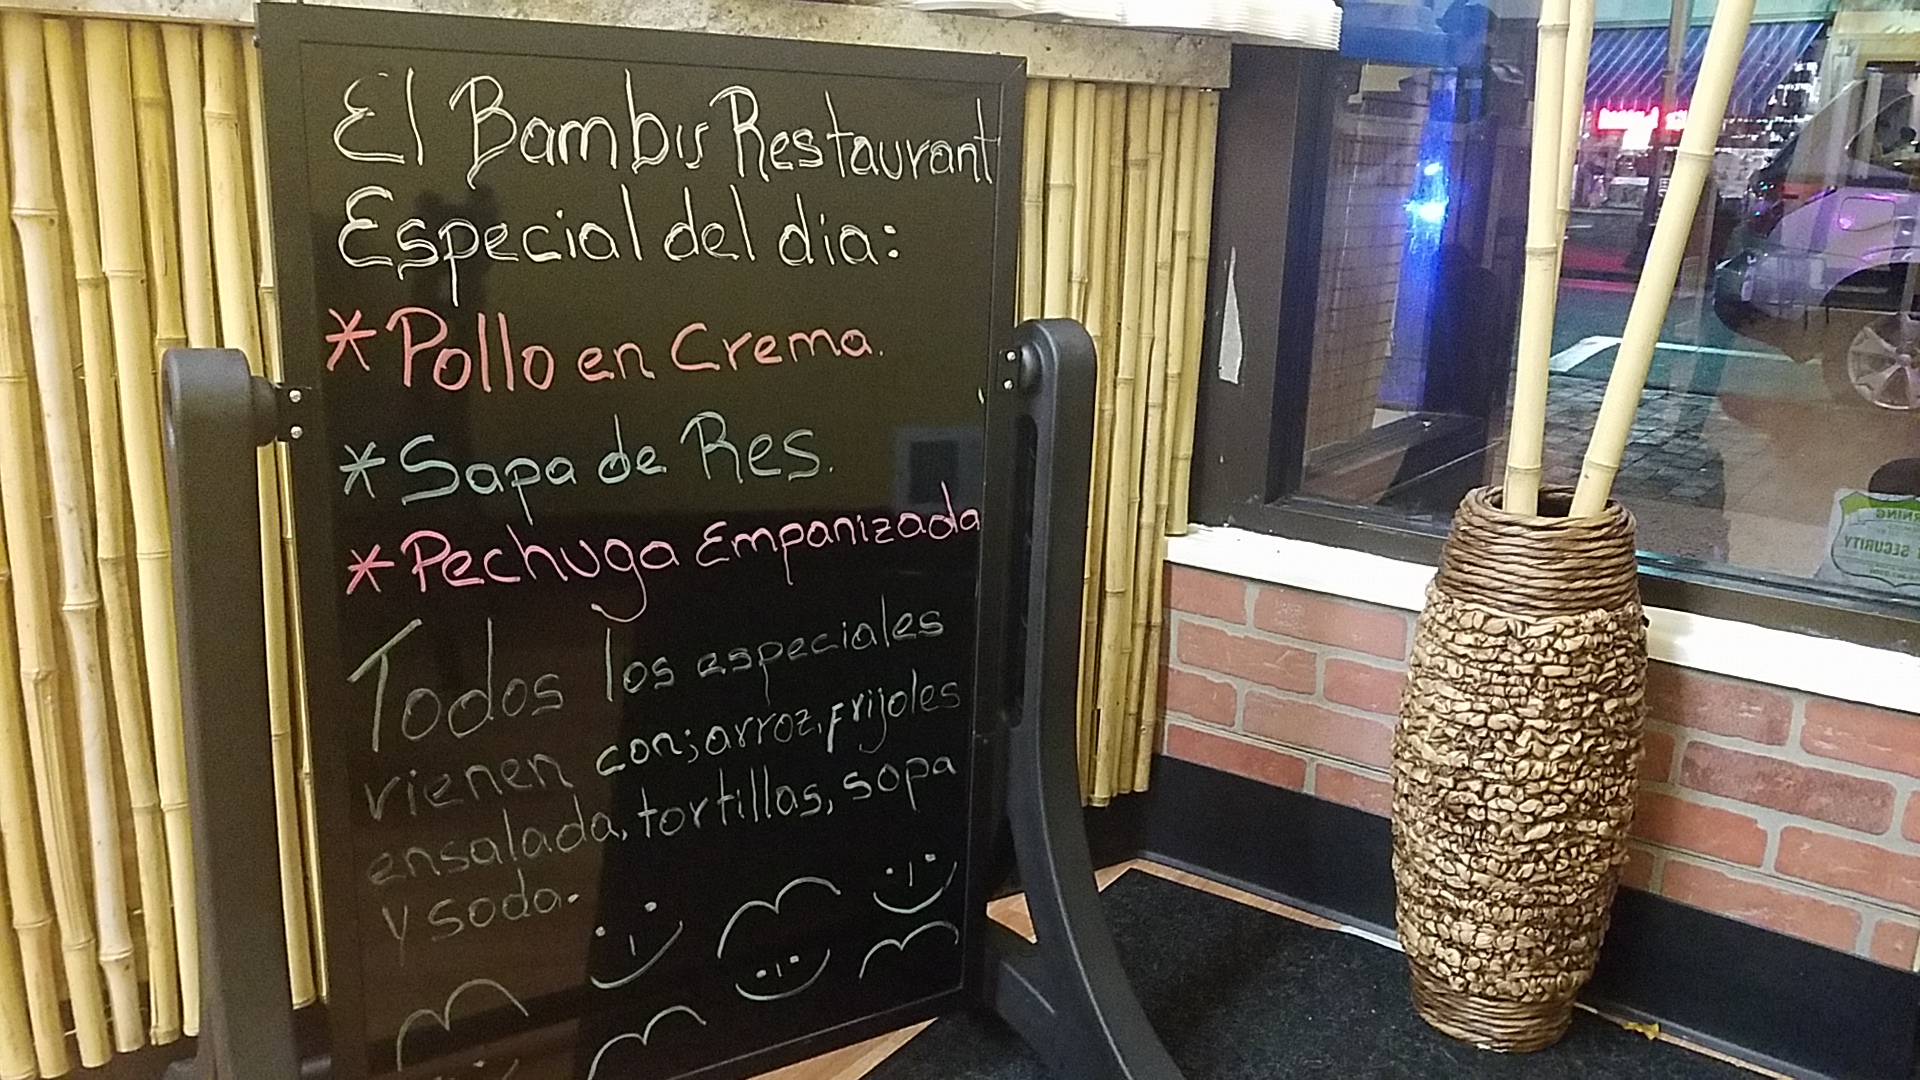 El Bambu Restaurant
Especial del dia:
*Pollo en Crema.
*Sopa de Res.
*Pechuga Empanizada
Todos los especiales
vienen con; arroz, frijoles
ensalada, tortillas, sopa
y soda.
SECURITY